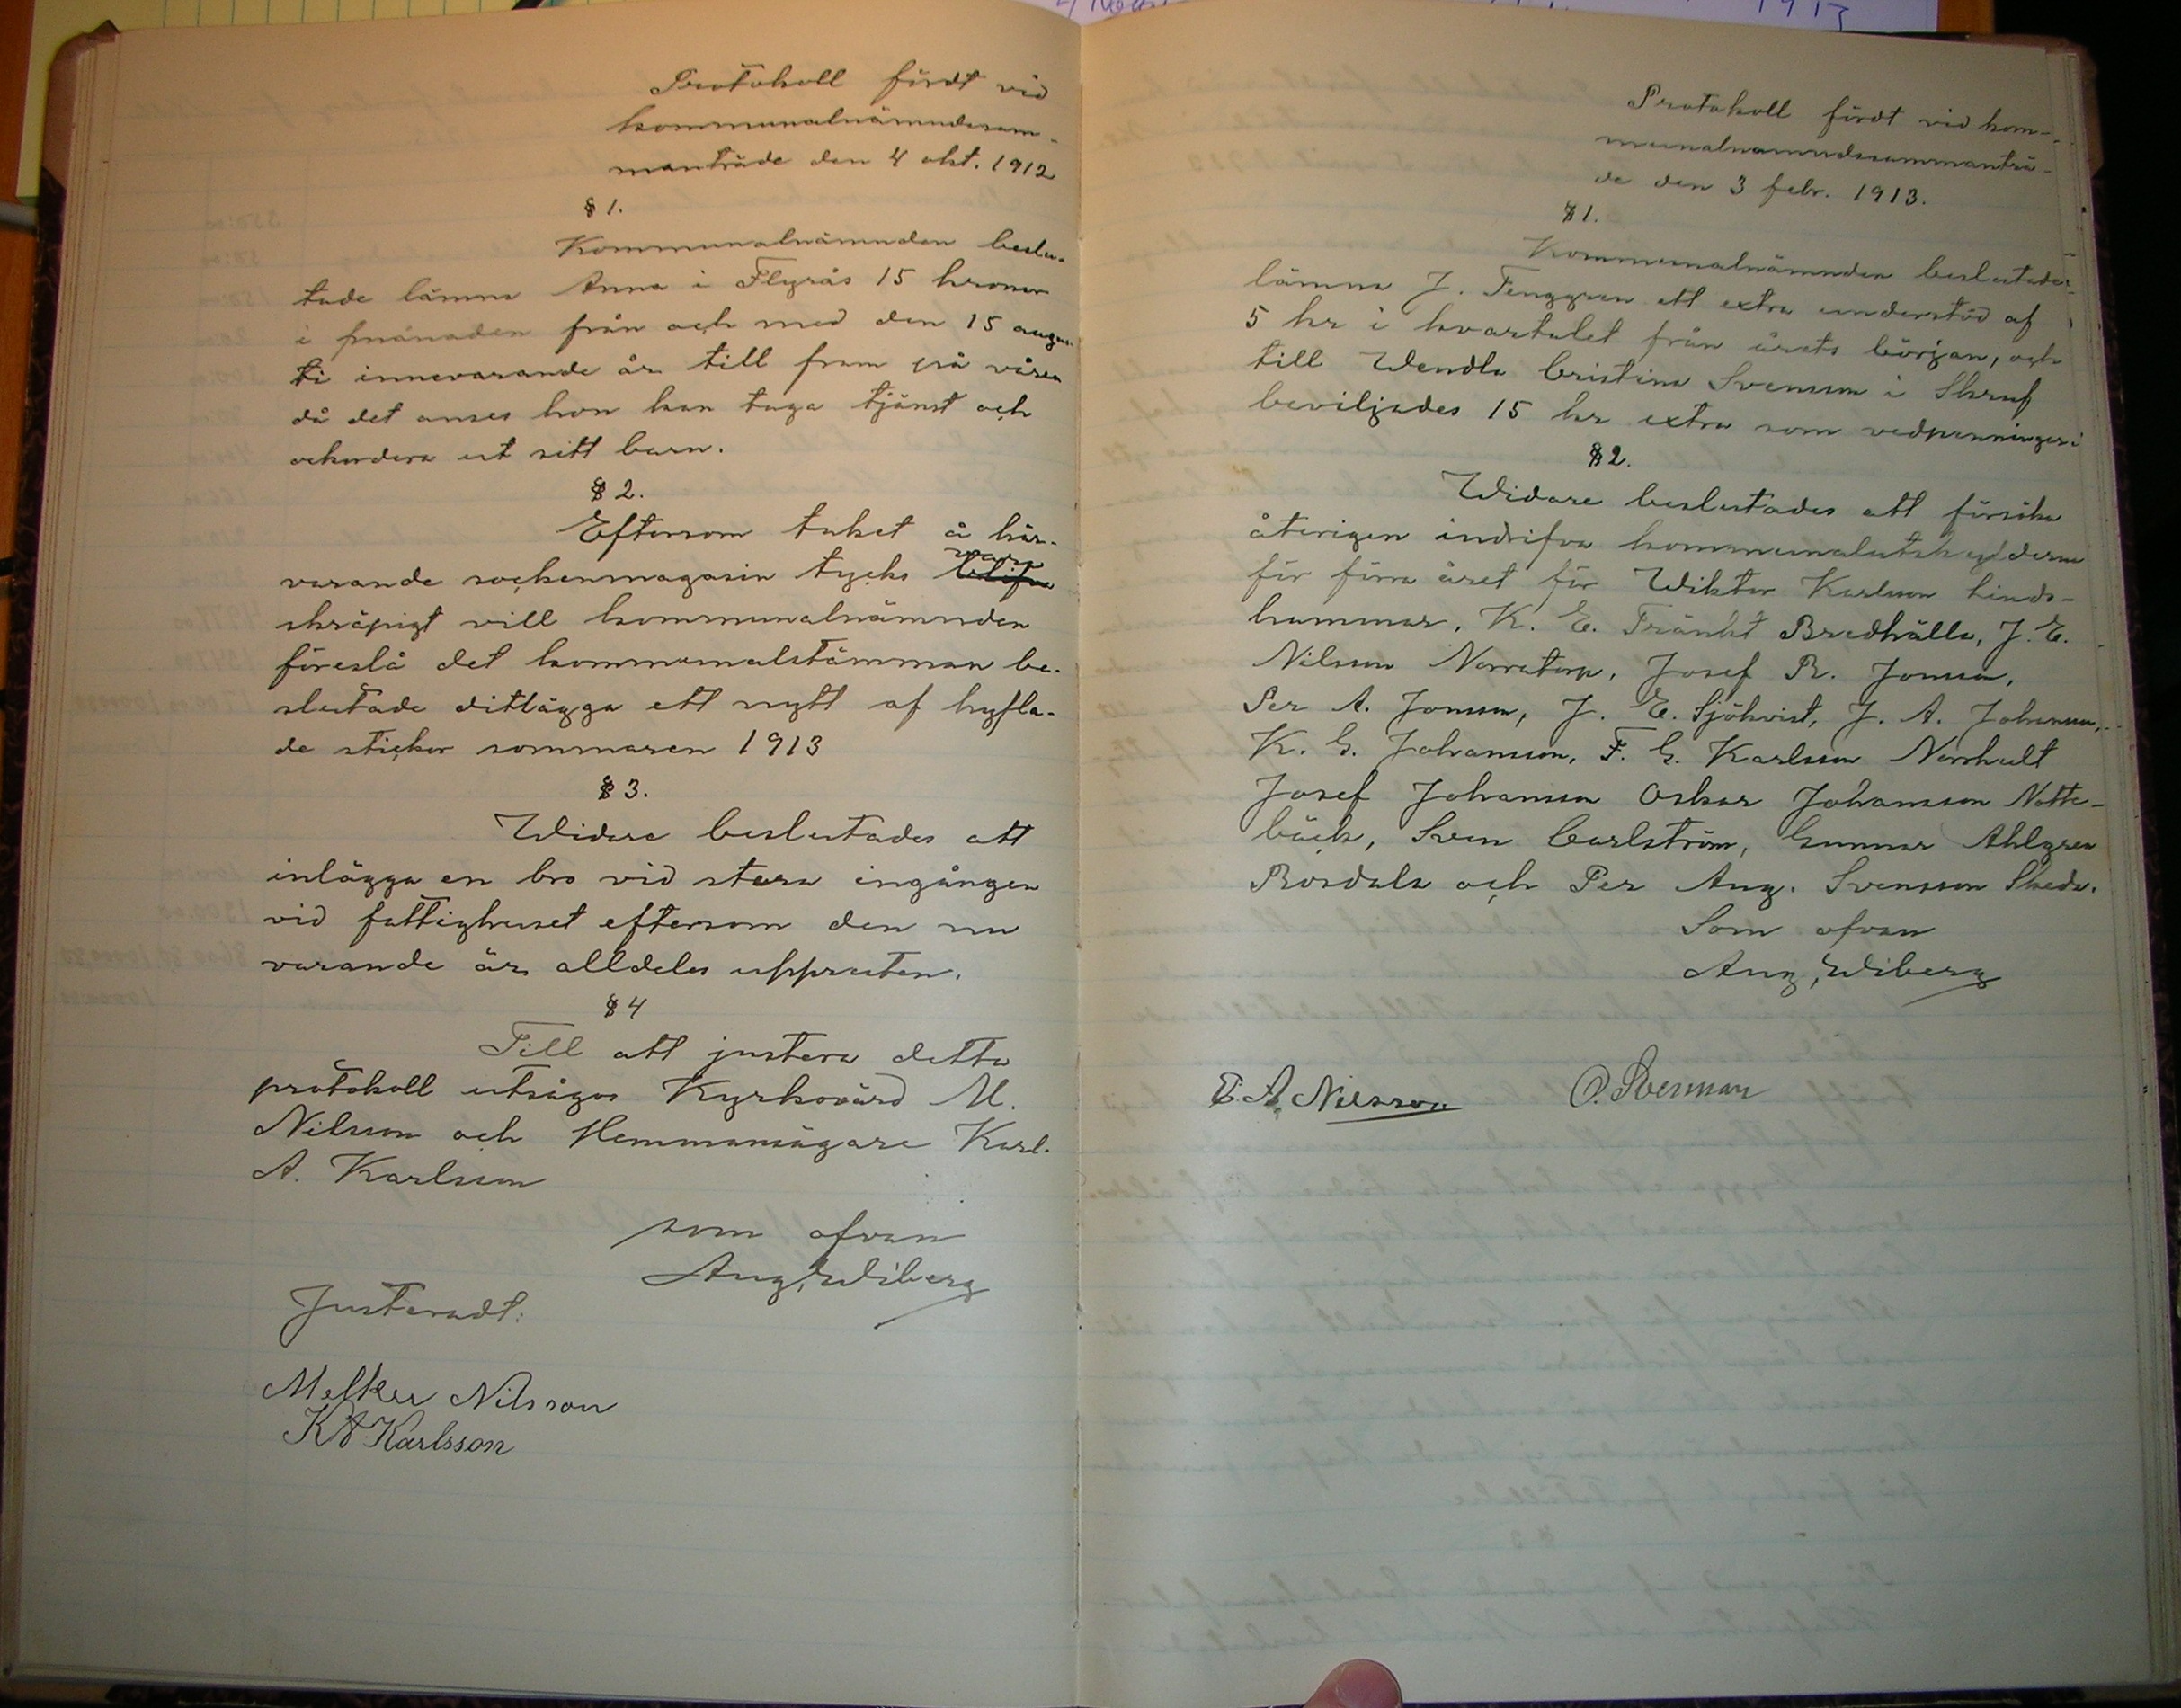 1913
Protokoll fördt vid
kommunalnämndssam-
manträde den 4 okt. 1912
§ 1.
Kommunalnämnden beslu-
tade lämna Anna i Flygrås 15 kronor
i månaden från och med den 15 augus-
ti innevarande år till fram på våren
då det anses hon kan taga tjänst och
ackordera ut sitt barn.
§ 2.
Eftersom taket å här-
vara
varande sockenmagasin tycks blifva
skräpigt vill kommunalnämnden
föreslå det kommunalstämman be-
slutade ditlägga ett nytt af hyfla-
de stickor sommaren 1913
§ 3.
Widare beslutades att
inlägga en bro vid stora ingången
vid fattighuset eftersom den nu
varande är alldeles uppruten.
§ 4
Till att justera detta
protokoll utsågos Kyrkovärd M.
Nilsson och Hemmansägare Karl.
A. Karlsson
som ofvan
Aug, Wiberg
Justeradt:
Melker Nilsson
K A Karlsson
Protokoll fördt vid kom-
munalnämndssammanträ-
de den 3 febr. 1913.
§ 1.
Kommunalnämnden beslutade
lämna J. Fenggren ett extra understöd af
5 kr i kvartalet från årets början, och
till Wendla Cristina Svensson i Skruf
beviljades 15 kr extra som vedpenningar
§ 2.
Widare beslutades att försöka
återigen indrifva kommunalutskylderna
för förra året för Wiktor Karlsson Linds-
hammar, K. E. Fränkt Bredhälla, J. E.
Nilsson Norratorp, Josef R. Jonsson,
Per A. Jonsson, J. E. Sjökvist, J. A. Johansson,
K. G. Johansson, F. G. Karlsson Norrhult
Josef Johansson Oskar Johansson Notte-
bäck, Sven Carlström, Gunnar Ahlgren
Rosdala och Per Aug. Svensson Skeda.
Som ofvan
Aug, Wiberg
E. A. Nilsson O. Åberman